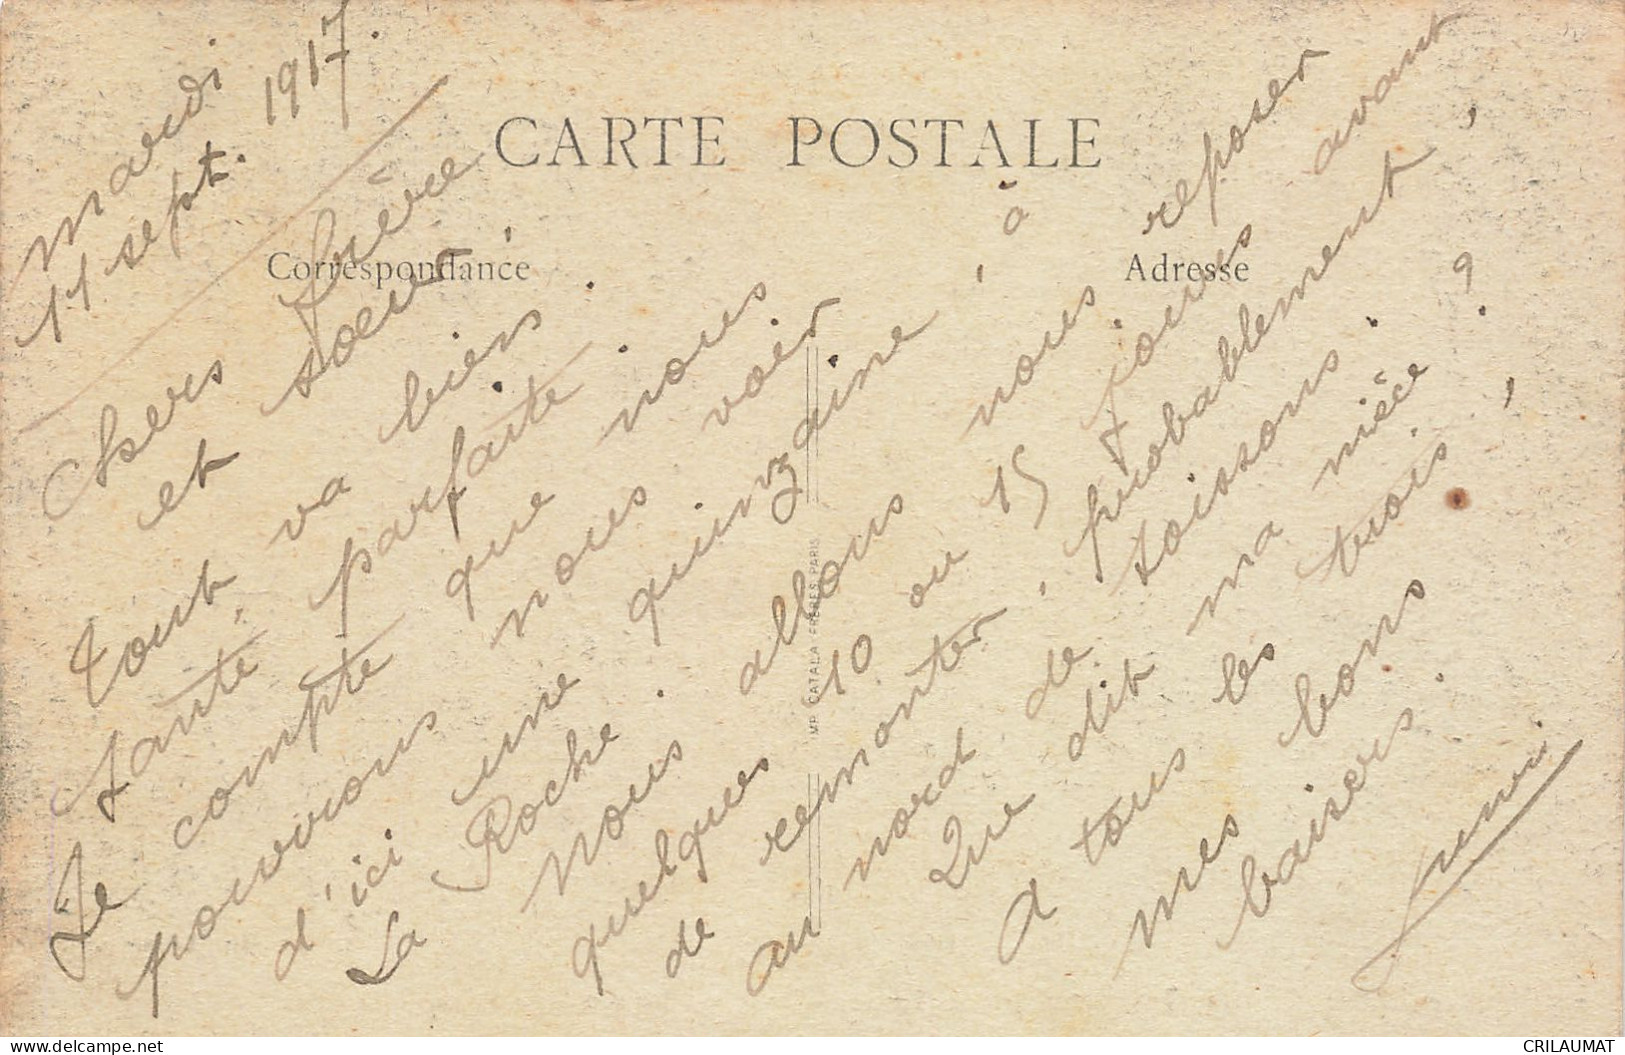 CARTE POSTALE
Correspondance
Adresse
Mardi
11 sept. 1917.
Chers frère
et soeur,
Tout va bien.
Santé parfaite.
Je compte que nous
pourrons nous voir
d'ici une quinzaine, à
La Roche.
Nous allons nous reposer
quelques 10 ou 15 jours avant
de remonter, probablement,
au nord de Soissons.
Que dit ma nièce ?
A tous les trois,
mes bons
baisers.
IMP. CATALA FRÈRES, PARIS
delcampe.net
CRILAUMAT